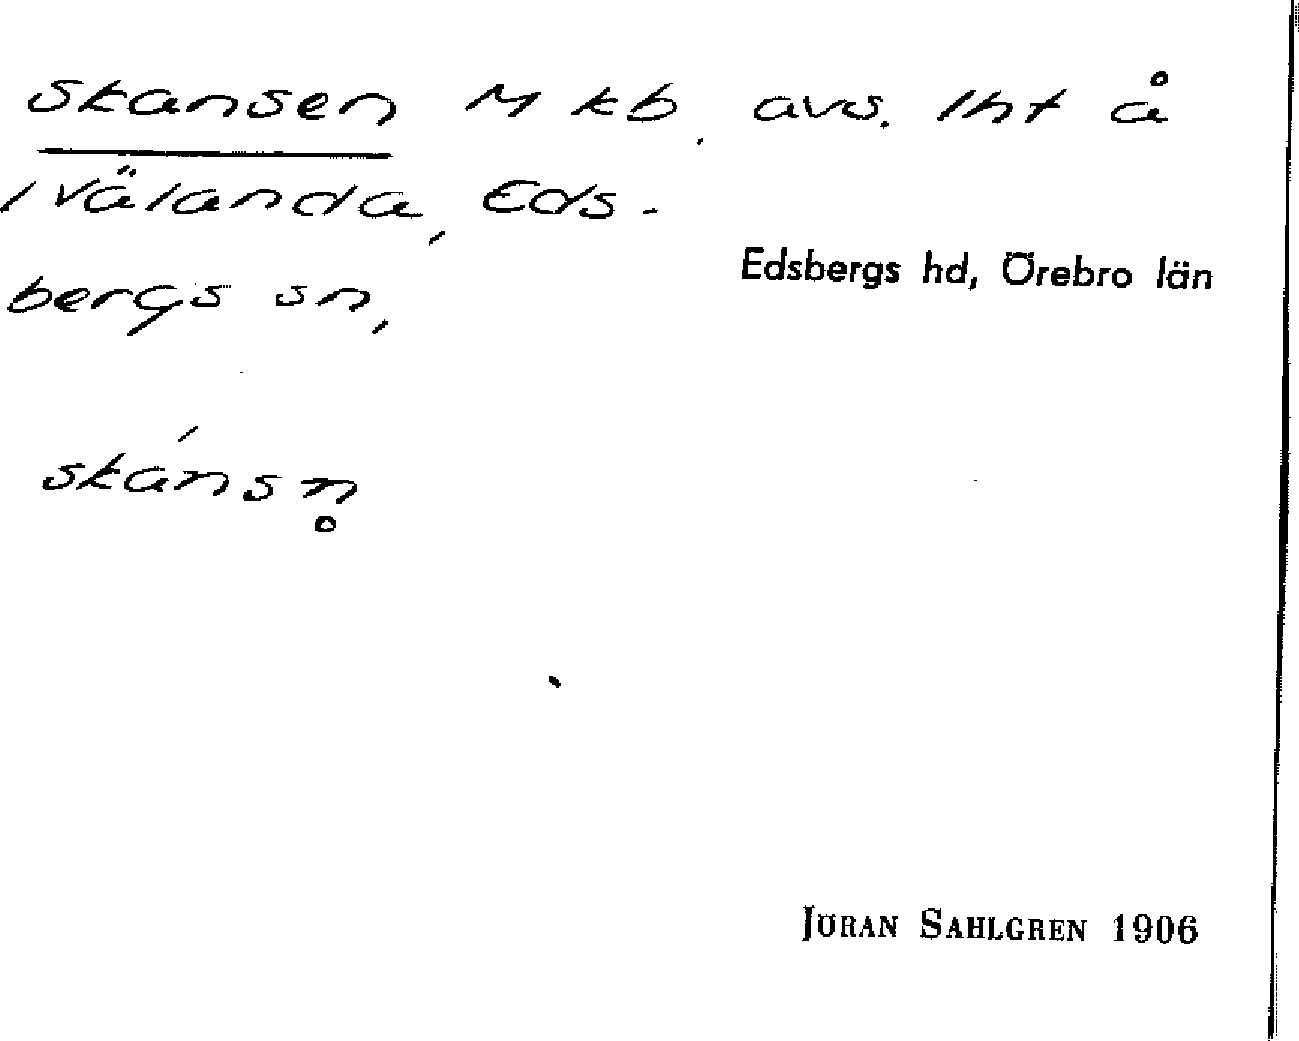 Skansen M kb. avs. lht å
i Välanda, Eds-
bergs sn,
Edsbergs hd, Örebro län
skánsn̥
JÖRAN SAHLGREN 1906